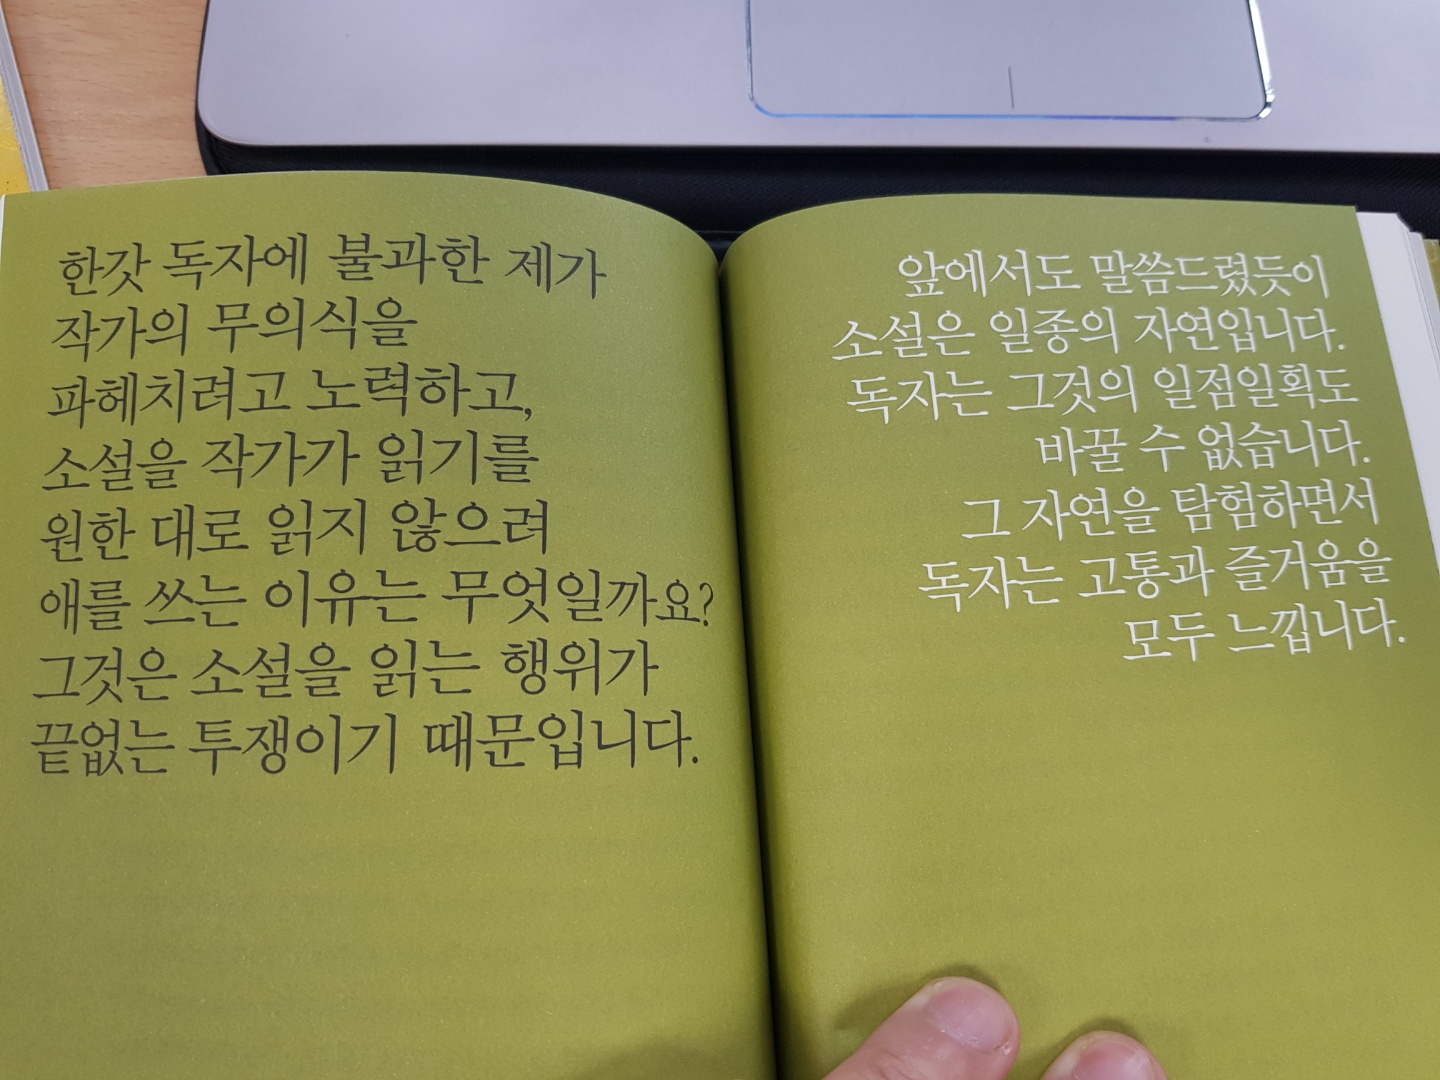 한갓 독자에 불과한 제가
작가의 무의식을
파헤치려고 노력하고,
소설을 작가가 읽기를
원한 대로 읽지 않으려
애를 쓰는 이유는 무엇일까요?
그것은 소설을 읽는 행위가
끝없는 투쟁이기 때문입니다.
앞에서도 말씀드렸듯이
소설은 일종의 자연입니다.
독자는 그것의 일점일획도
바꿀 수 없습니다.
그 자연을 탐험하면서
독자는 고통과 즐거움을
모두 느낍니다.